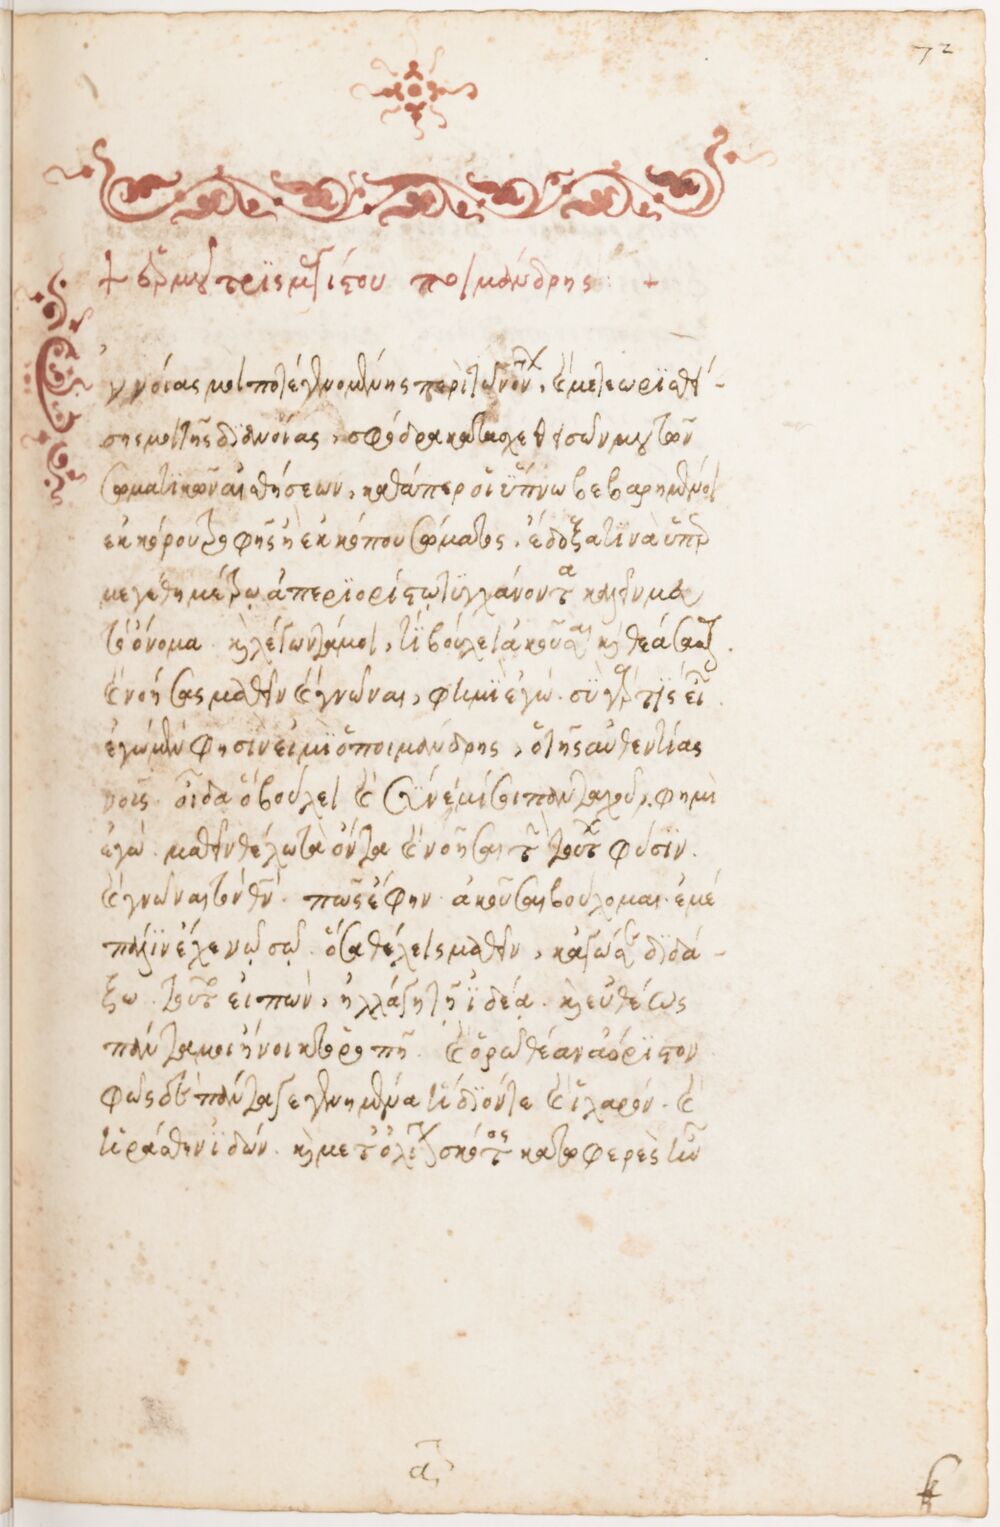 72
+ ἑρμοῦ τρϊσμεγίστου ποιμάνδρης +
Ἐννοίας μοι ποτὲ γενομένης περὶ τῶν ὄντων, καὶ μετεωρϊσθεί-
σης μοι τῆς διανοίας, σφόδρα κατασχεθεισῶν μου τῶν
σωματϊκῶν αἰσθήσεων, καθάπερ οἱ ὕπνω βεβαρημένοι
ἐκ κόρου τροφῆς ἢ ἐκ κόπου σώματος. ἔδοξα τϊνὰ ὑπὲρ
μεγέθη μέτρῳ ἀπερϊορίστῳ τϋγχάνοντα καλεῖν μου
τὸ ὄνομα. καὶ λέγοντά μοι, τί βούλει ἀκοῦσαι καὶ θεάσασθαι.
καὶ νοήσας μαθεῖν καὶ γνῶναι, φημὶ ἐγώ. σὺ γὰρ τίς εἶ.
ἐγὼ μέν φησϊν εἰμὶ ὁ ποιμάνδρης, ὁ τῆς αὐθεντίας
νοῦς. οἶδα ὃ βούλει καὶ σύνειμί σοι πανταχοῦ, φημὶ
ἐγώ. μαθεῖν θέλω τὰ ὄντα καὶ νοῆσαι τὴν τούτων φύσϊν.
καὶ γνῶναι τὸν θεόν. πῶς ἔφην ἀκοῦσαι βούλομαι. ἐμέ
πάλϊν ἔχε νῷ σῷ. ὅσα θέλεις μαθεῖν, κἀγώ σε διδά-
ξω. τοῦτο εἰπὼν, ἠλλάγη τῇ ἰδέᾳ. καὶ εὐθέως
πάντα μοι ἤνοικτο ῥοπῇ. καὶ ὁρῶ θέαν ἀόρϊστον
φῶς δὲ πάντα γεγενημένα ἥδϊόν τε καὶ ἱλαρόν. καὶ
ἠράσθην ἰδών. καὶ μετ' ὀλίγον σκότος κατωφερὲς ἦν
α